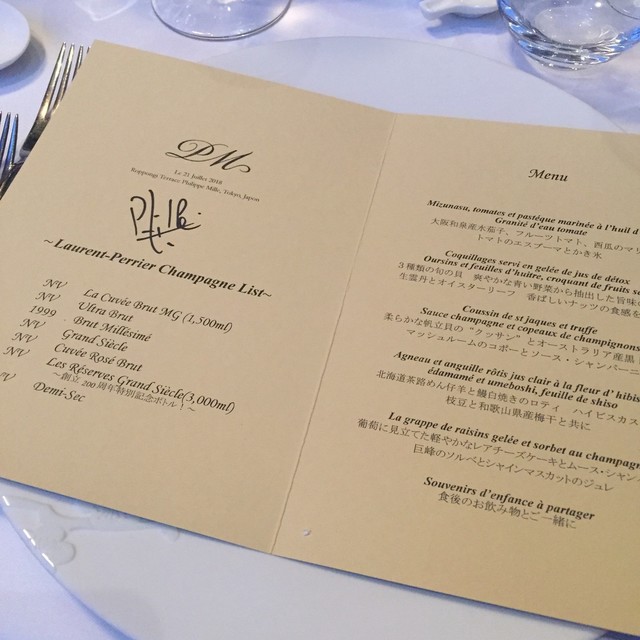 DM
Le 21 Juillet 2018
Roppongi Terrace Philippe Mille, Tokyo, Japon
~Laurent-Perrier Champagne List~
NV La Cuvée Brut MG (1,500ml)
NV Ultra Brut
1999 Brut Millésimé
NV Grand Siècle
NV Cuvée Rosé Brut
NV Les Réserves Grand Siècle(3,000ml)
~創立200周年特別記念ボトル！~
NV Demi-Sec
Menu
Mizunasu, tomates et pastéque marinée à l'huil d'
Granité d'eau tomate
大阪和泉産水茄子、フルーツトマト、西瓜のマリ
トマトのエスプーマとかき氷
Coquillages servi en gelée de jus de détox
Oursins et feuilles d'huître, croquant de fruits s
3種類の旬の貝 爽やかな青い野菜から抽出した旨味の
生雲丹とオイスターリーフ 香ばしいナッツの食感を
Coussin de st jaques et truffe
Sauce champagne et copeaux de champignons
柔らかな帆立貝の“クッサン”とオーストラリア産黒
マッシュルームのコポーとソース・シャンパーニ
Agneau et anguille rôtis jus clair à la fleur d' hibis
édamamé et umeboshi, feuille de shiso
北海道茶路めん仔羊と鰻白焼きのロティ ハイビスカス
枝豆と和歌山県産梅干と共に
La grappe de raisins gelée et sorbet au champag
葡萄に見立てた軽やかなレアチーズケーキとムース・シャン
巨峰のソルベとシャインマスカットのジュレ
Souvenirs d'enfance à partager
食後のお飲み物とご一緒に